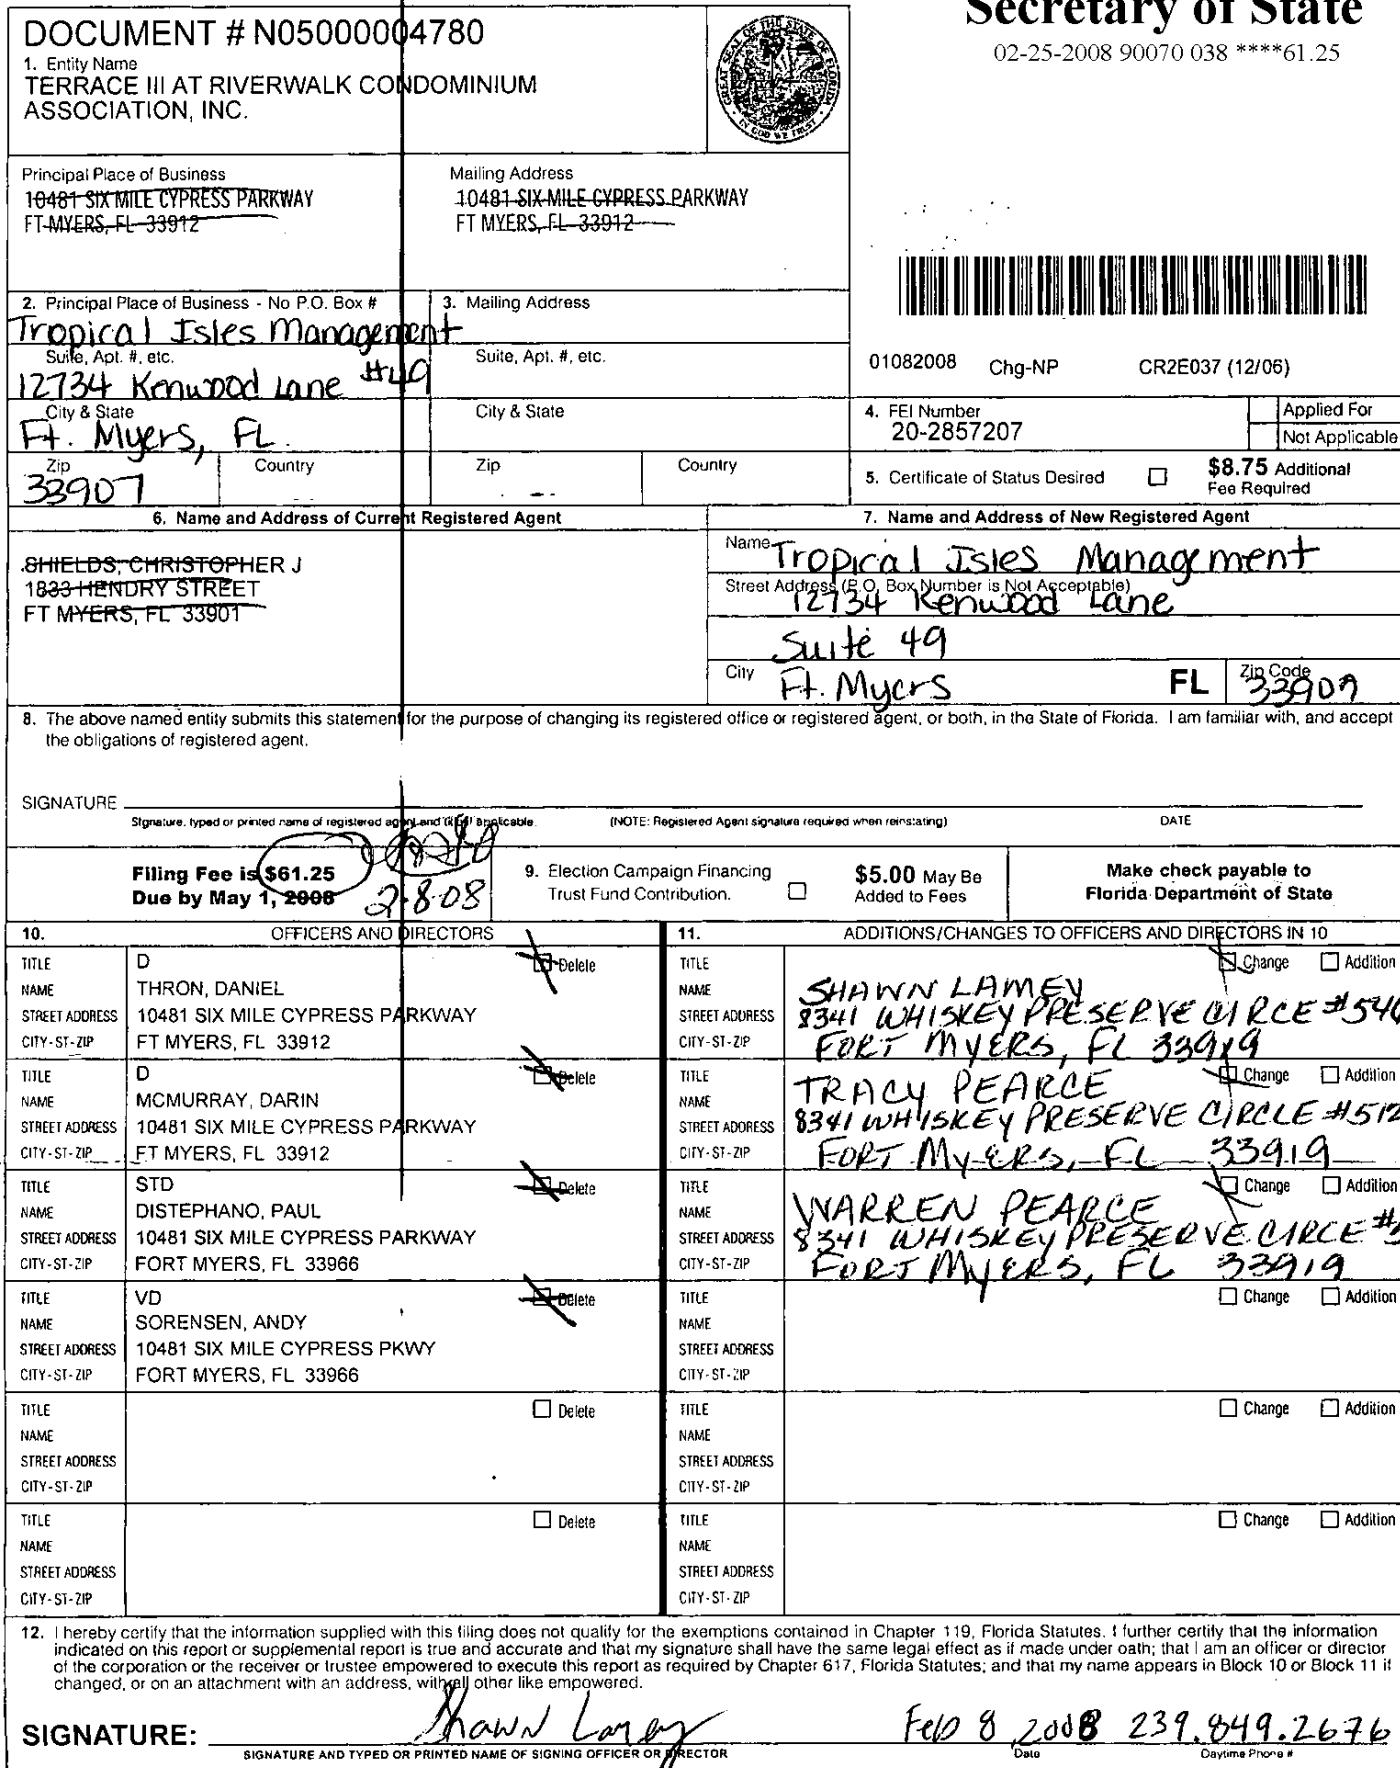 Secretary of State
02-25-2008 90070 038 ****61.25
DOCUMENT # N05000004780
1. Entity Name
TERRACE III AT RIVERWALK CONDOMINIUM
ASSOCIATION, INC.
GREAT SEAL OF THE STATE OF FLORIDA
IN GOD WE TRUST
Principal Place of Business
10481 SIX MILE CYPRESS PARKWAY
FT MYERS, FL 33912
Mailing Address
10481 SIX MILE CYPRESS PARKWAY
FT MYERS, FL 33912
2. Principal Place of Business - No P.O. Box #
Tropical Isles Management
Suite, Apt. #, etc.
12734 Kenwood Lane #49
City & State
Ft. Myers, FL.
Zip
Country
33907
3. Mailing Address
Suite, Apt. #, etc.
City & State
Zip
Country
01082008 Chg-NP CR2E037 (12/06)
4. FEI Number
20-2857207
Applied For
Not Applicable
5. Certificate of Status Desired
$8.75 Additional
Fee Required
6. Name and Address of Current Registered Agent
SHIELDS, CHRISTOPHER J
1833 HENDRY STREET
FT MYERS, FL 33901
7. Name and Address of New Registered Agent
Name Tropical Isles Management
Street Address (P.O. Box Number is Not Acceptable)
12734 Kenwood Lane
Suite 49
City Ft. Myers FL Zip Code 33907
8. The above named entity submits this statement for the purpose of changing its registered office or registered agent, or both, in the State of Florida. I am familiar with, and accept
the obligations of registered agent.
SIGNATURE
Signature, typed or printed name of registered agent and title if applicable. (NOTE: Registered Agent signature required when reinstating) DATE
Filing Fee is $61.25
Due by May 1, 2008
2-8-08
9. Election Campaign Financing
Trust Fund Contribution.
$5.00 May Be
Added to Fees
Make check payable to
Florida Department of State
10. OFFICERS AND DIRECTORS
TITLE D Delete
NAME THRON, DANIEL
STREET ADDRESS 10481 SIX MILE CYPRESS PARKWAY
CITY-ST-ZIP FT MYERS, FL 33912
TITLE D Delete
NAME MCMURRAY, DARIN
STREET ADDRESS 10481 SIX MILE CYPRESS PARKWAY
CITY-ST-ZIP FT MYERS, FL 33912
TITLE STD Delete
NAME DISTEPHANO, PAUL
STREET ADDRESS 10481 SIX MILE CYPRESS PARKWAY
CITY-ST-ZIP FORT MYERS, FL 33966
TITLE VD Delete
NAME SORENSEN, ANDY
STREET ADDRESS 10481 SIX MILE CYPRESS PKWY
CITY-ST-ZIP FORT MYERS, FL 33966
TITLE Delete
NAME
STREET ADDRESS
CITY-ST-ZIP
TITLE Delete
NAME
STREET ADDRESS
CITY-ST-ZIP
11. ADDITIONS/CHANGES TO OFFICERS AND DIRECTORS IN 10
TITLE Change Addition
NAME SHAWN LAMEY
STREET ADDRESS 8341 WHISKEY PRESERVE CIRCE
CITY-ST-ZIP FORT MYERS, FL 33919
TITLE Change Addition
NAME TRACY PEARCE
STREET ADDRESS 8341 WHISKEY PRESERVE CIRCLE #512
CITY-ST-ZIP FORT MYERS, FL 33919
TITLE Change Addition
NAME WARREN PEARCE
STREET ADDRESS 8341 WHISKEY PRESERVE CIRCE
CITY-ST-ZIP FORT MYERS, FL 33919
TITLE Change Addition
NAME
STREET ADDRESS
CITY-ST-ZIP
TITLE Change Addition
NAME
STREET ADDRESS
CITY-ST-ZIP
TITLE Change Addition
NAME
STREET ADDRESS
CITY-ST-ZIP
12. I hereby certify that the information supplied with this filing does not qualify for the exemptions contained in Chapter 119, Florida Statutes. I further certify that the information
indicated on this report or supplemental report is true and accurate and that my signature shall have the same legal effect as if made under oath; that I am an officer or director
of the corporation or the receiver or trustee empowered to execute this report as required by Chapter 617, Florida Statutes; and that my name appears in Block 10 or Block 11 if
changed, or on an attachment with an address, with all other like empowered.
SIGNATURE: Shawn Lamey Feb 8, 2008 239.849.2676
SIGNATURE AND TYPED OR PRINTED NAME OF SIGNING OFFICER OR DIRECTOR Date Daytime Phone #